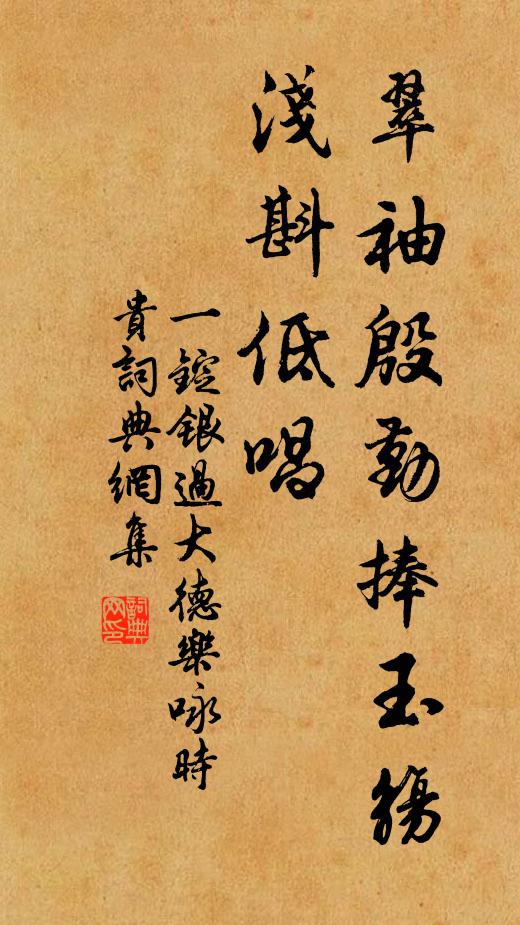 翠袖殷勤捧玉觴
淺斟低唱
一錠銀過大德樂咏時
貴詞典網集
詞典網印